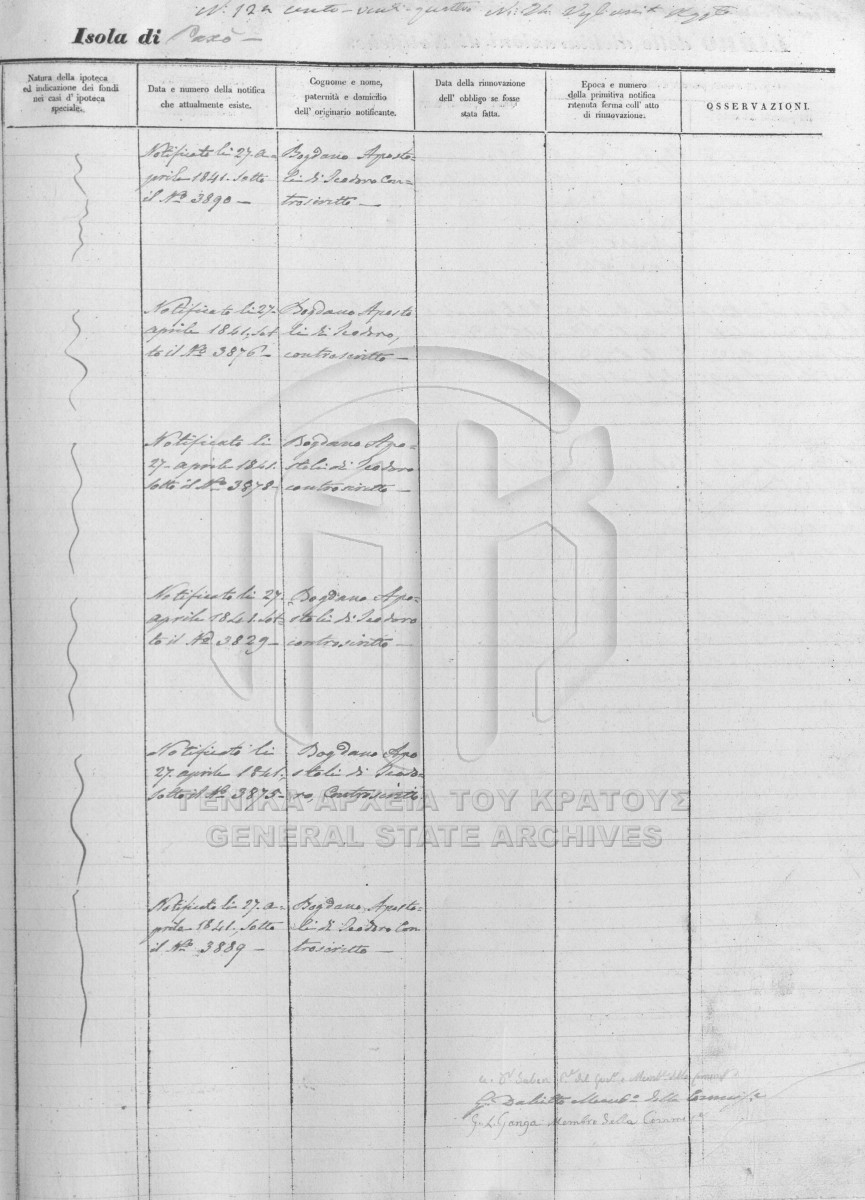 Isola di Paxò —
Natura della ipoteca
ed indicazione dei fondi
nei casi d' ipoteca
speciale.
Data e numero della notifica
che attualmente esiste.
Cognome e nome,
paternità e domicilio
dell' originario notificante.
Data della rinnovazione
dell' obbligo se fosse
stata fatta.
Epoca e numero
della primitiva notifica
ritenuta ferma coll' atto
di rinnovazione.
OSSERVAZIONI.
Notificato li 27. a=
prile 1841. sotto
il No. 3890 —
Bogdano Aposto=
li di Teodoro con=
troscritto —
Notificato li 27.
aprile 1841. sot
to il No. 3876 —
Bogdano Aposto
li di Teodoro,
controscritto —
Notificato li
27. aprile 1841.
sotto il No. 3878 —
Bogdano Apo=
stoli di Teodoro
controscritto —
Notificato li 27.
aprile 1841. sot=
to il No. 3829 —
Bogdano Apo=
stoli di Teodoro
controscritto —
Notificato li
27. aprile 1841.
sotto il No. 3875 —
Bogdano Apo
stoli di Teodo=
ro, Controscritto
Notificato li 27. a=
prile 1841. sotto
il No. 3889 —
Bogdano, Aposto=
li di Teodoro Con
troscritto —
ΓΕΝΙΚΑ ΑΡΧΕΙΑ ΤΟΥ ΚΡΑΤΟΥΣ
GENERAL STATE ARCHIVES
della
Ganga Membro della